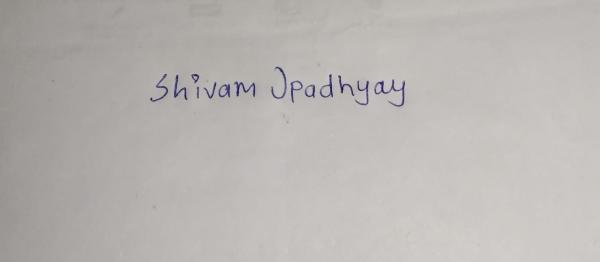 Shivam Upadhyay